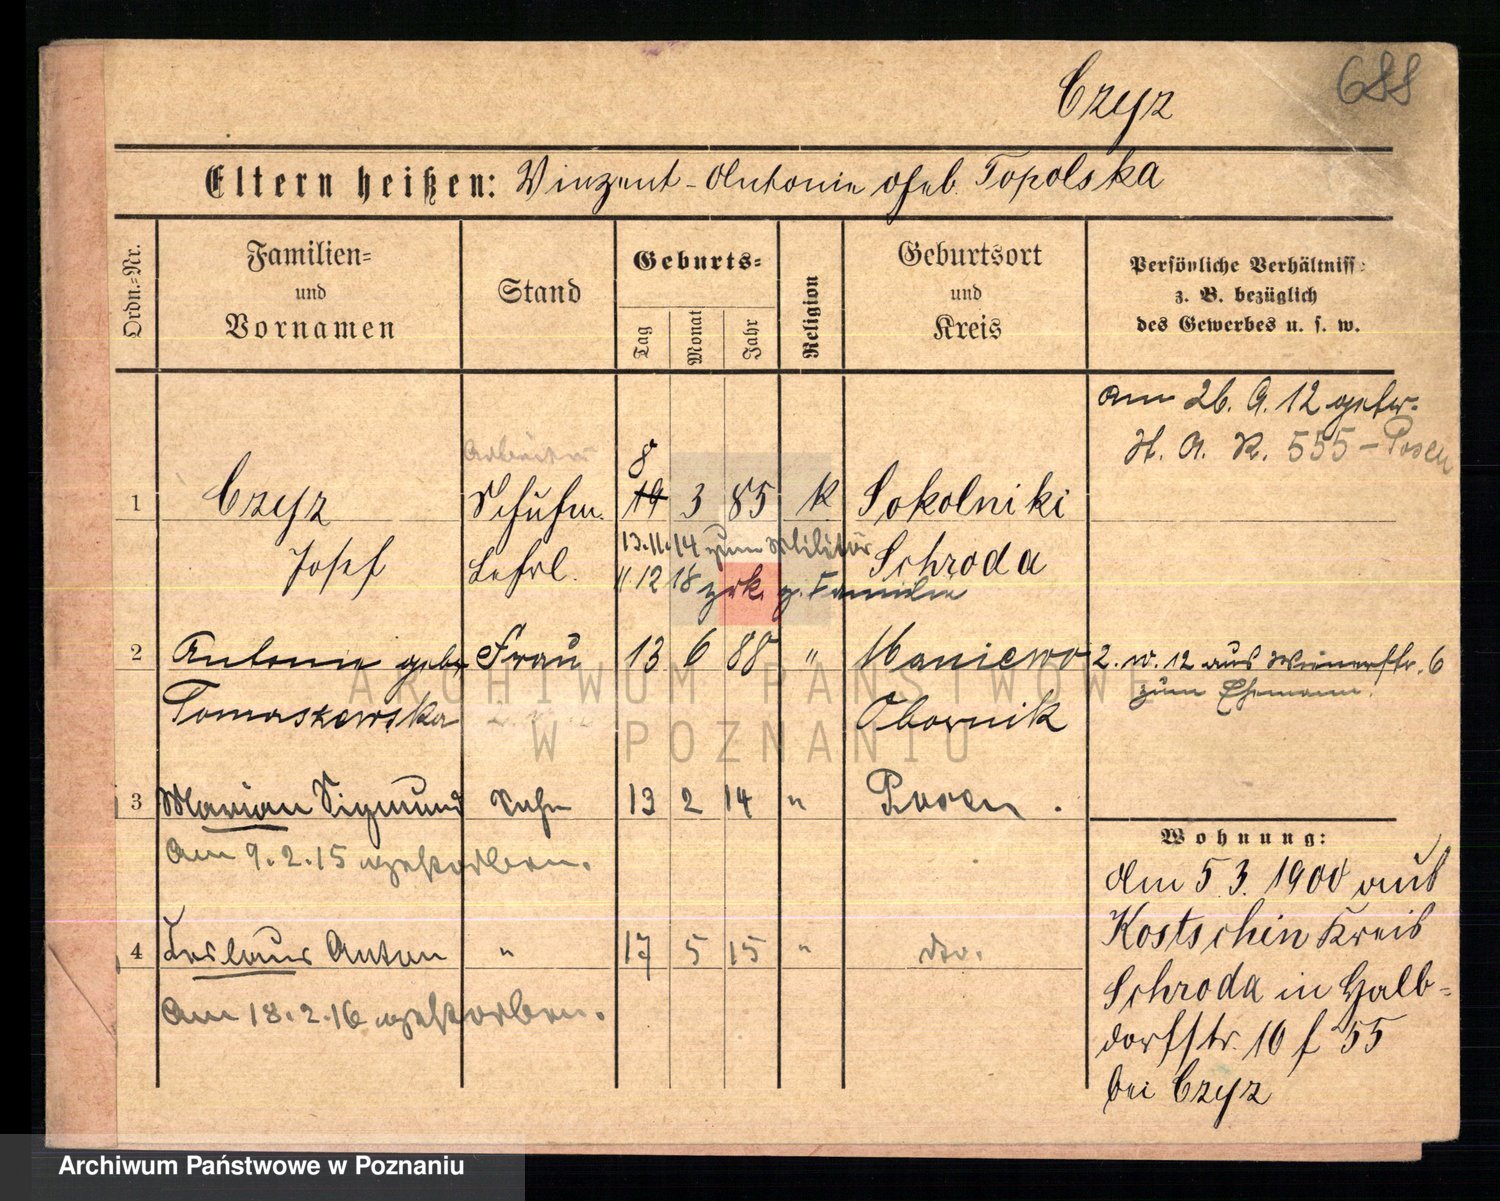 688
Czyz
Eltern heißen: Vinzent - Antonie geb. Topolska
Ordn.-Nr.
Familien-
und
Vornamen
Stand
Geburts-
Tag
Monat
Jahr
Religion
Geburtsort
und
Kreis
Persönliche Verhältnisse
z. B. bezüglich
des Gewerbes u. s. w.
am 26. 9. 12 getr.
H. A. R. 555 - Posen
Arbeiter
8
1 Czyz Schuhm. 19 3 85 k Sokolniki
Josef Lehrl. 13.11.14 zum Militär Schroda
11. 12 18 zrk. z. Familie
2 Antonie geb. Frau 13 6 88 " Maniewo 2. 10. 12 aus Wienerstr. 6
zum Ehemann.
Tomaszewska Obornik
3 Marian Sigmund Sohn 13 2 14 " Posen.
am 9. 2. 15 gestorben.
4 Zeslaus Anton " 17 5 15 " do.
am 18. 2. 16 gestorben.
Wohnung:
den 5 3. 1900 aus
Kostschin Kreis
Schroda in Halb-
dorfstr. 10 f 55
bei Czyz
ARCHIWUM PAŃSTWOWE
W POZNANIU
Archiwum Państwowe w Poznaniu